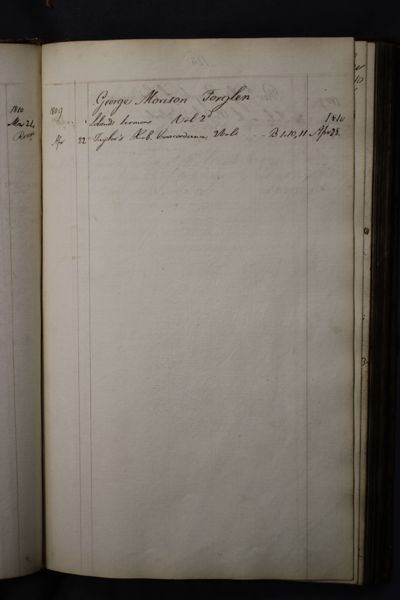 1810
Mar 24
George Morison Forglen
1809
Sermons Vol 2d
1810
Apr 22 Taylor's Heb. Concordance, 2 Vols B. 1.10, 11 Apr 28.